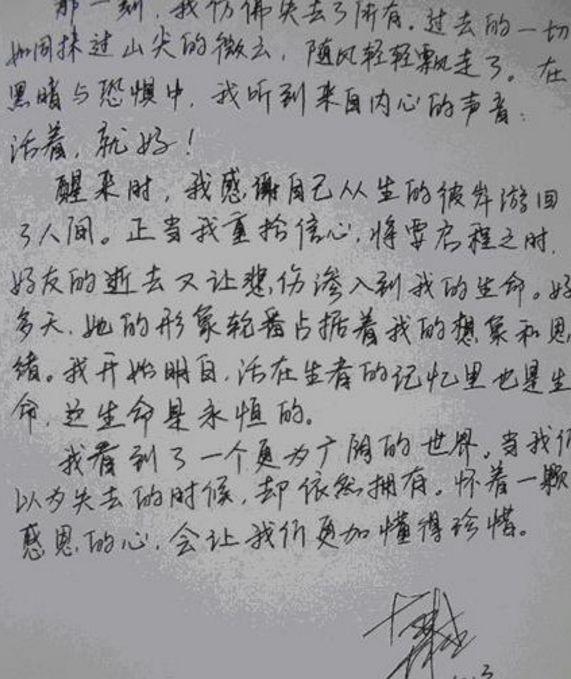 那一刻，我仿佛失去了所有。过去的一切
如同抹过山尖的微云，随风轻轻飘走了。在
黑暗与恐惧中，我听到来自内心的声音：
活着，就好！
醒来时，我感谢自己从生的彼岸游回
了人间。正当我重拾信心，将要启程之时，
好友的逝去又让悲伤渗入到我的生命。好
多天，她的形象轮番占据着我的想象和思
绪。我开始明白，活在生者的记忆里也是生
命，这生命是永恒的。
我看到了一个更为广阔的世界。当我们
以为失去的时候，却依然拥有。怀着一颗
感恩的心，会让我们更加懂得珍惜。